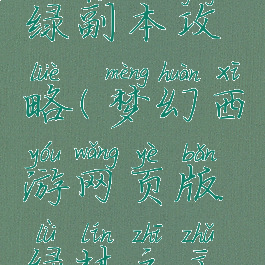 绿副本攻
lüè mèng huàn xī
略(梦幻西
yóu wǎng yè bǎn
游网页版
lǜ lín zhī zhǔ
绿林之主